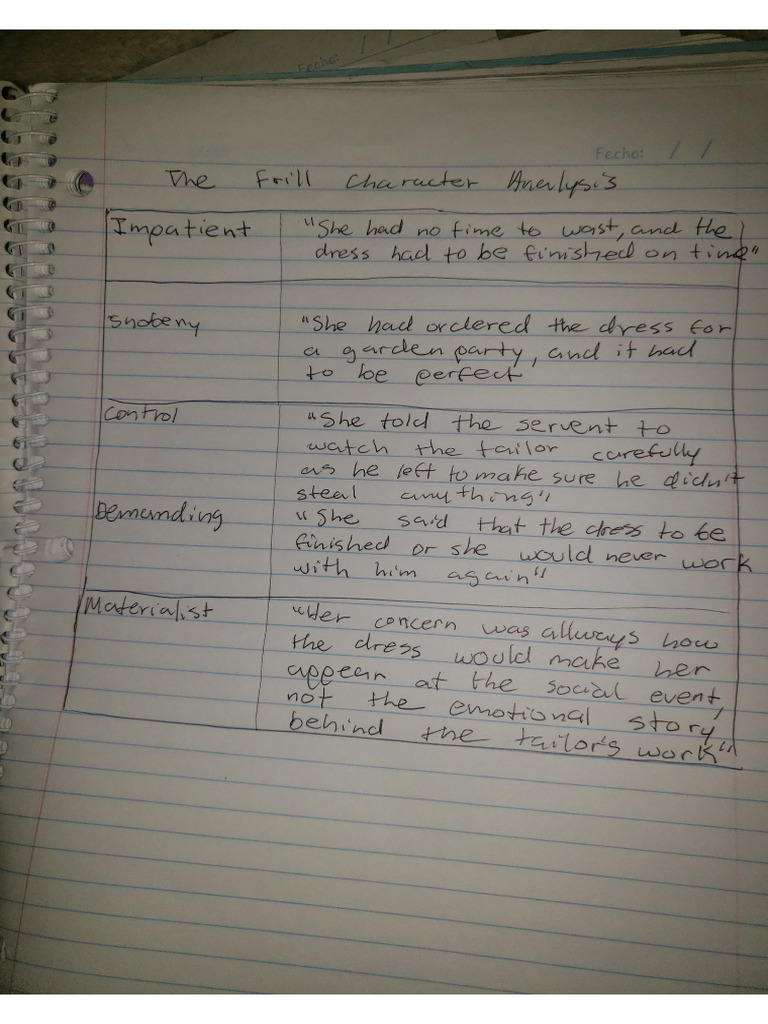 Fecha:
Fecha: / /
The Frill Character Analysis
Impatient "She had no time to wast, and the
dress had to be finished on time"
snobeny "She had ordered the dress for
a garden party, and it had
to be perfect
Control "She told the servent to
watch the tailor carefully
as he left to make sure he didn't
steal anything"
Demanding "She said that the dress to be
finished or she would never work
with him again"
Materialist "Her concern was allways how
the dress would make her
appear at the social event,
not the emotional story
behind the tailor's work"